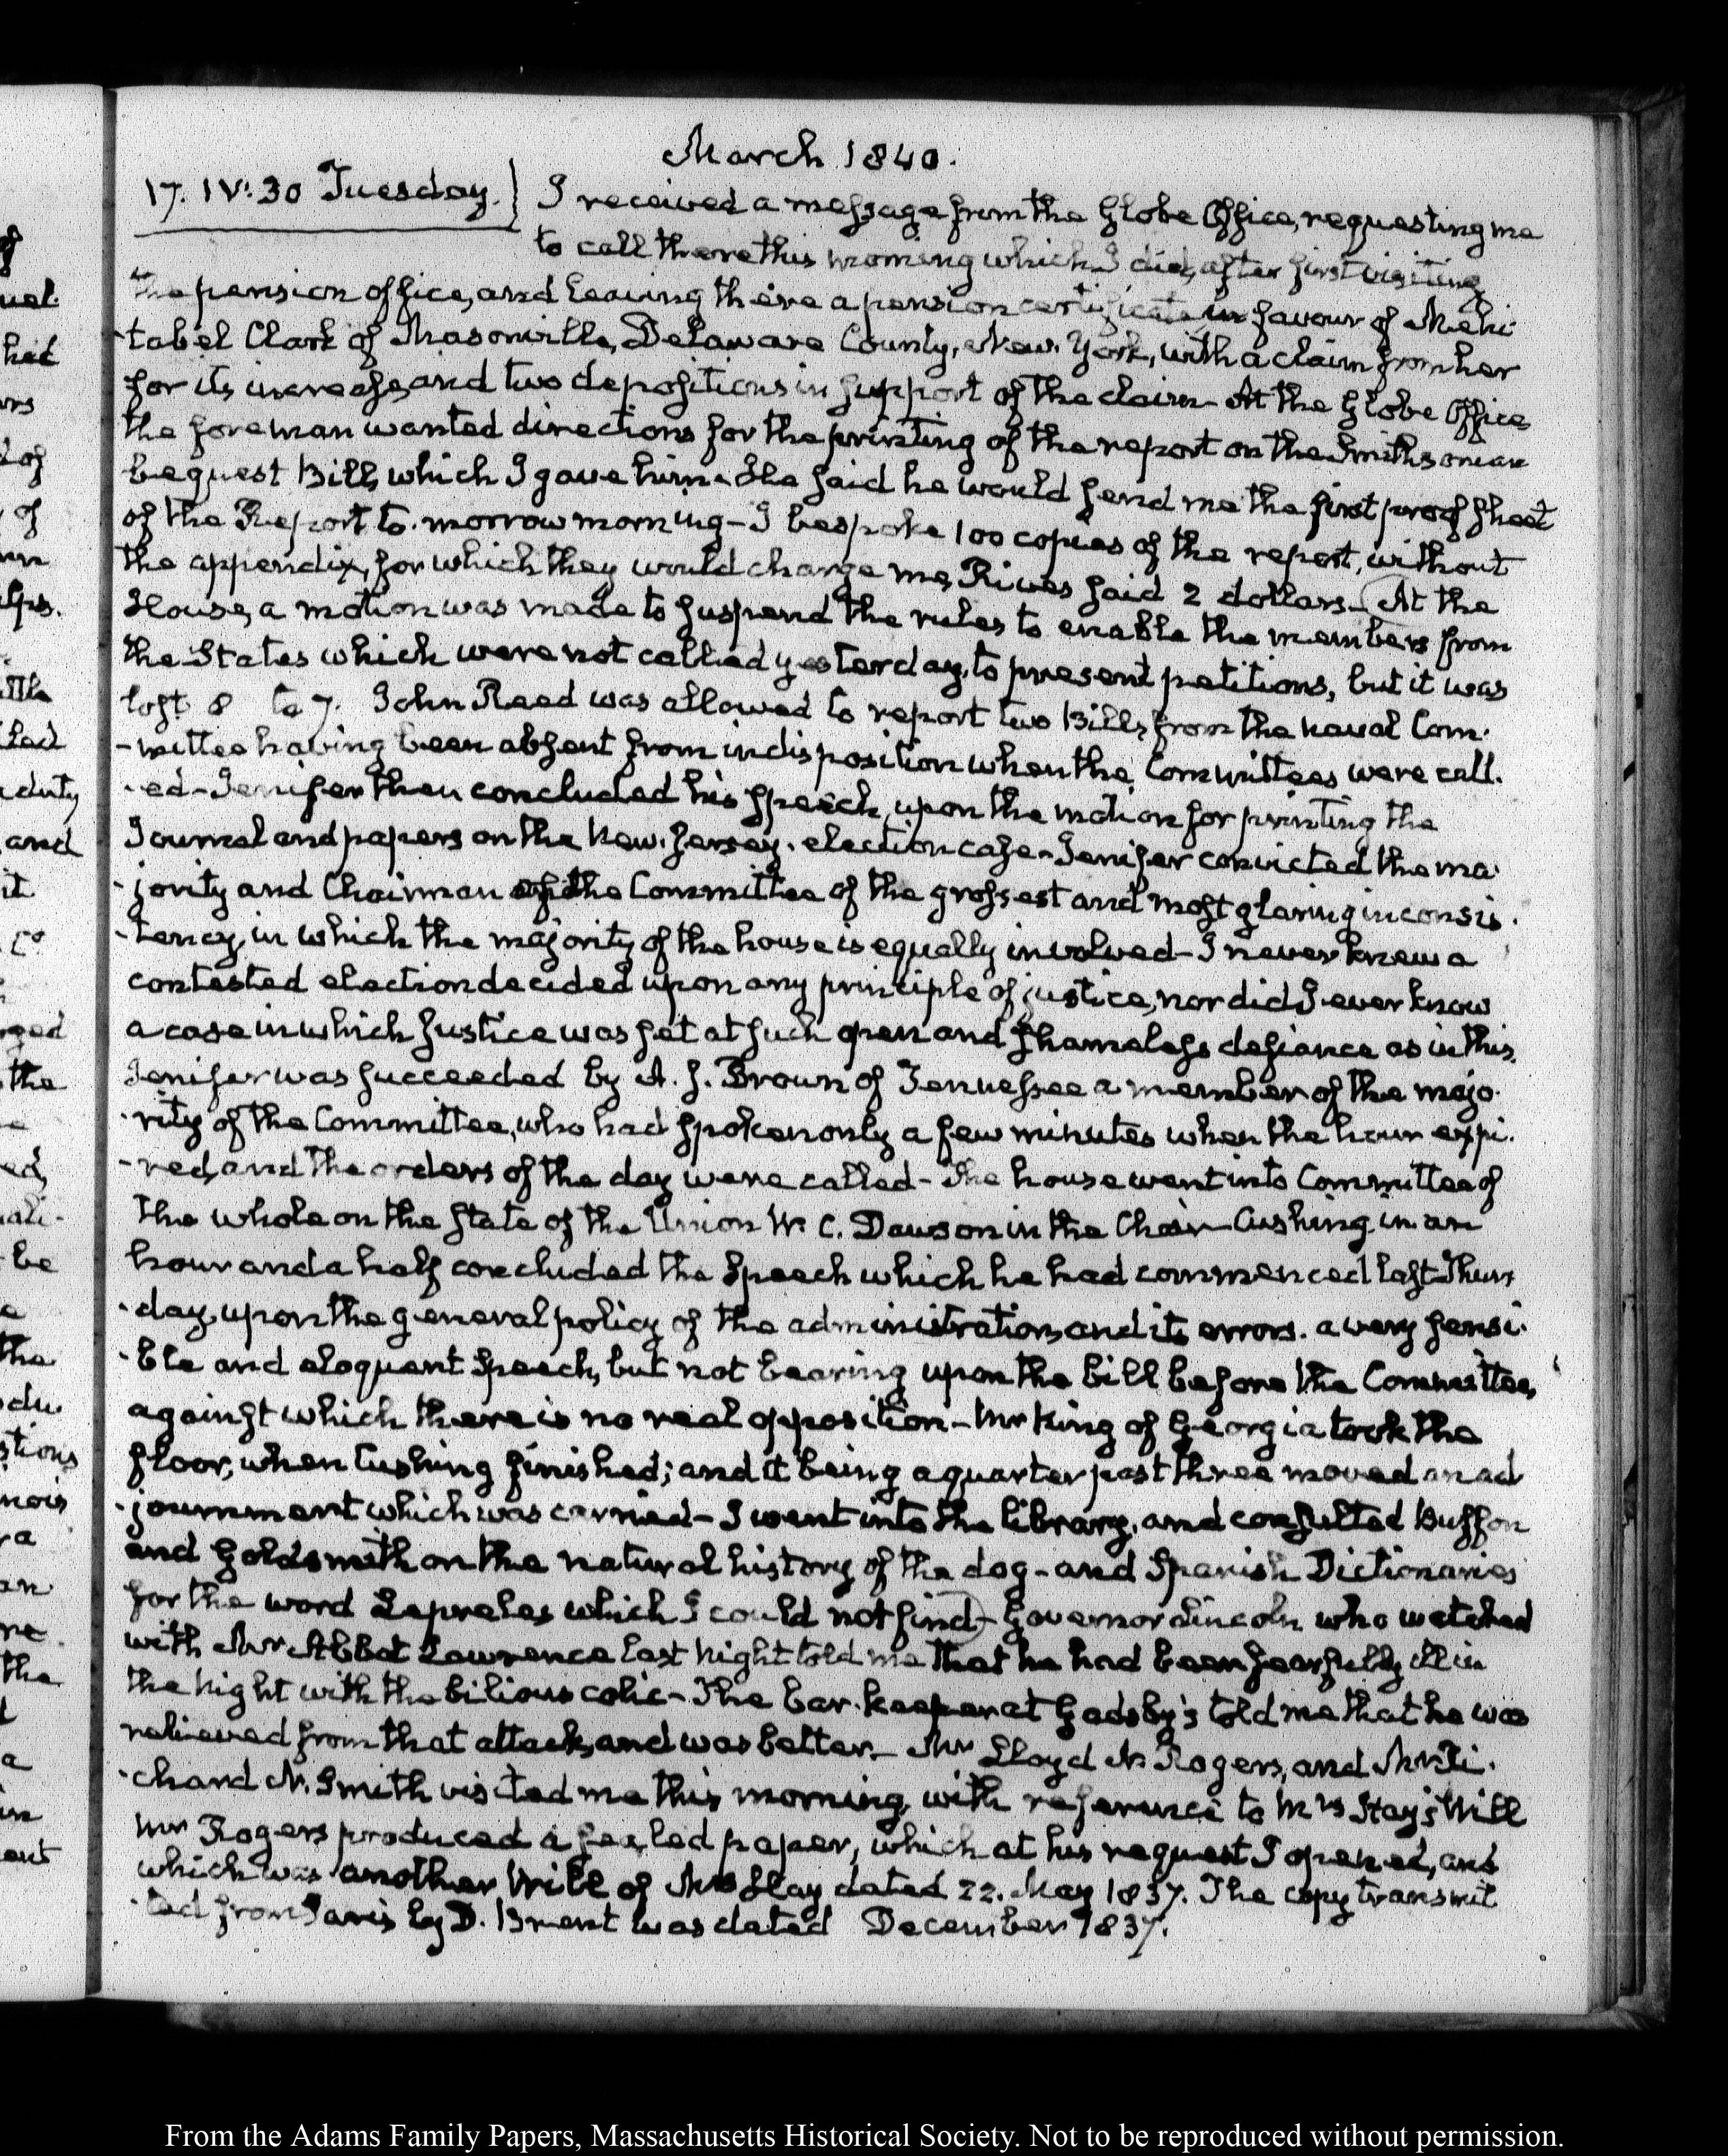 March 1840.
17. IV:30 Tuesday. I received a message from the Globe Office, requesting me
to call there this morning which I did, after first visiting
the pension office, and leaving there a pension certificate in favour of Mehi-
-tabel Clark of Masonville, Delaware County, New-York, with a claim from her
for its increase, and two depositions in support of the claim. At the Globe Office
the foreman wanted directions for the printing of the report on the Smithsonian
bequest Bill, which I gave him. He said he would send me the first proof sheet
of the Report to-morrow morning- I bespoke 100 copies of the report, without
the appendix, for which they would charge me, Rives said 2 dollars. (At the
House, a motion was made to suspend the rules to enable the members from
the States which were not called yesterday, to present petitions, but it was
lost 8 to 7. John Reed was allowed to report two Bills from the naval Com-
-mittee having been absent from indisposition when the Committees were call-
-ed- Jenifer then concluded his speech, upon the motion for printing the
Journal and papers on the New-Jersey election case- Jenifer convicted the ma-
-jority and Chairman of the Committee of the grossest and most glaring inconsis-
-tency, in which the majority of the house is equally involved- I never knew a
contested election decided upon any principle of justice, nor did I ever know
a case in which Justice was set at such open and shameless defiance as in this.
Jenifer was succeeded by A. J. Brown of Tennessee a member of the majo-
-rity of the Committee, who had spoken only a few minutes when the hour expi-
-red, and the orders of the day were called- The house went into Committee of
the whole on the State of the Union W. C. Dawson in the Chair- Cushing in an
hour and a half concluded the Speech which he had commenced last Thurs-
-day, upon the general policy of the administration, and its errors. a very sensi-
-ble and eloquent Speech, but not bearing upon the bill before the Committee,
against which there is no real opposition- Mr King of Georgia took the
floor, when Cushing finished; and it being a quarter past three moved an ad-
-journment which was carried- I went into the library, and consulted Buffon
and Goldsmith on the natural history of the dog- and Spanish Dictionaries
for the word Leprelos which I could not find)- Governor Lincoln who watched
with Mr Abbot Lawrence last Night told me that he had been fearfully ill in
the Night with the bilious colic- The bar-keeper at Gadsby's told me that he was
relieved from that attack, and was better- Mr Lloyd N. Rogers, and Mr Ri-
-chard N. Smith visited me this morning, with reference to Mrs Hay's Will
Mr Rogers produced a sealed paper, which at his request I opened, and
which was another Will of Mrs Hay dated 22. May 1837. The copy transmit-
-ted from Paris by D. Brent was dated December 1837.
From the Adams Family Papers, Massachusetts Historical Society. Not to be reproduced without permission.